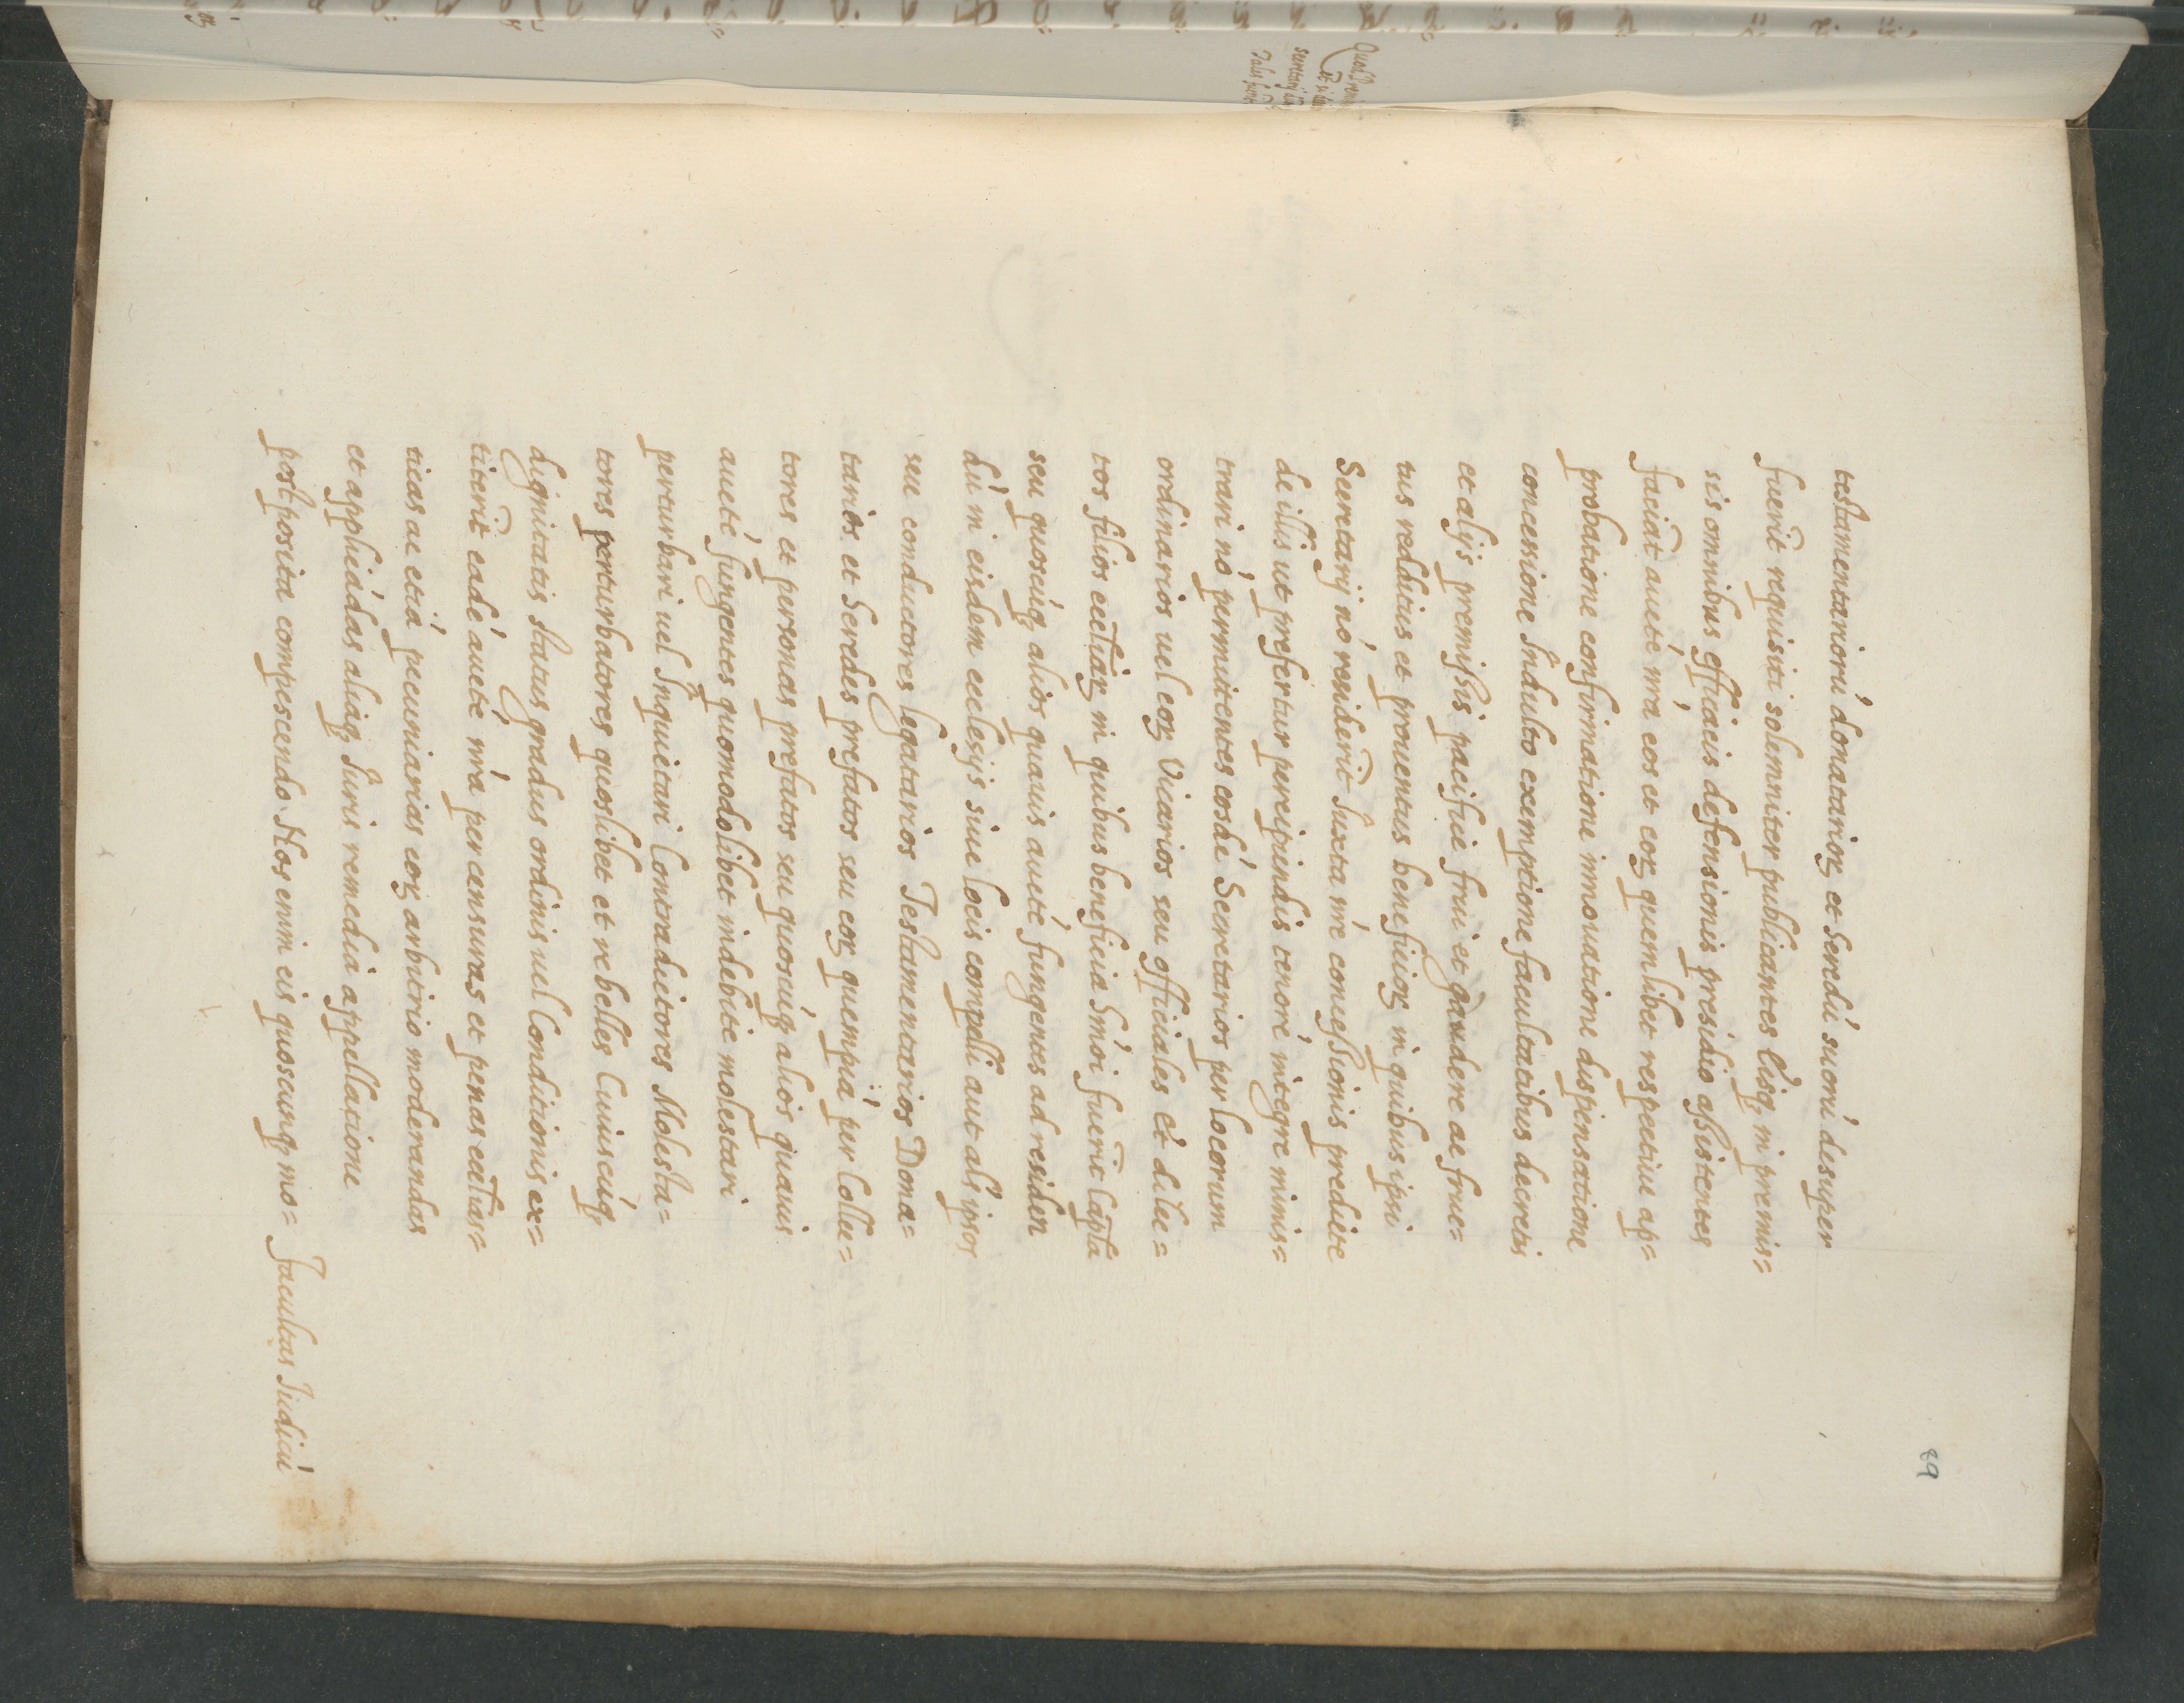 89
testamentariorú donatarioꝝ et Heredú suorú desuper
fuerit̄ requisiti solemniter publicantes eisq, in premis=
sis omnibus efficacis defensionis presidio assistentes
faciāt aucté nr̄a eos et eoꝝ quemlibet respectiue ap=
probatione confirmatione innouatione dispensatione
concessione Indulto exemptione facultatibus decretis
et alijs premissis pacificé frui et gaudere ac fruc=
tus redditus et prouentus beneficioꝝ in quibus ipsi
Secretarij nó residerit̄ Iuxta nŕe concessionis predicte
de illis ut prefertur percipiendis tenoré integre minis=
trari nó permittentes eosdé Secretarios per locorum
ordinarios uel eoꝝ Vicarios seu officiales et dilec=
tos filios eccl̄iaꝝ in quibus beneficia Hmōi fuerit̄ Capl̄a
seu quoscúq, alios quauis aucté fungentes ad residen
dú in eisdem ecclesijs siue locis compelli aut al's ipsos
seu conductores legatarios Testamentarios Dona=
tarios et Heredes prefatos seu eoꝝ quempiá per Collec=
tores et personas prefatos seu quoscúq, alios quauis
aucté fungentes quomodolibet indebite molestari
perturbari uel Inquietari Contradictores Molesta=
tores perturbatores quoslibet et rebelles Cuiuscúq,
dignitatis status gradus ordinis uel Conditionis ex=
titerit̄ eadé aucté nr̄a per censuras et penas eccl̄ias=
ticas ac etiá pecuniarias eoꝝ arbitrio moderandas
et applicádas aliaq, Iuris remedia appellatione
postposita compescendo. Nos enim eis quoscunq, mo=
Facultas Iudicú